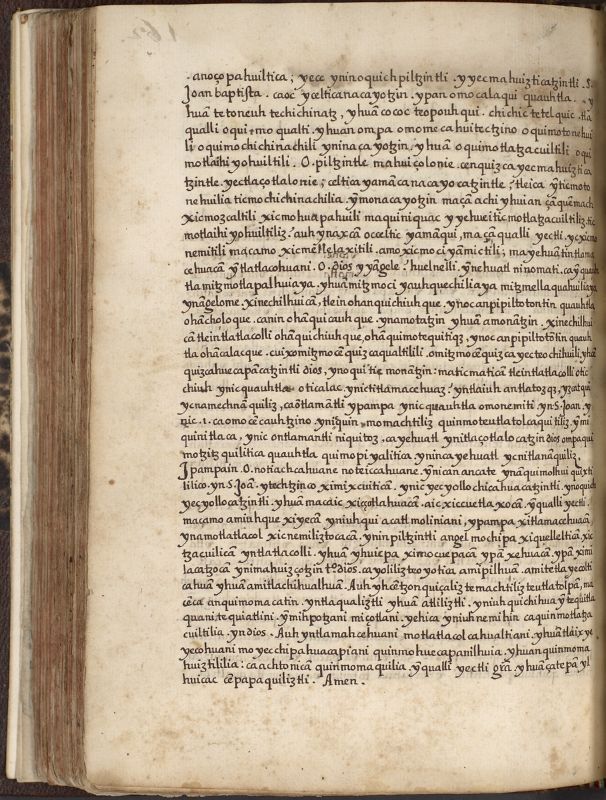 anoço pahuiltica; yece yninoquichpiltzintli. yyecmahuizticatzintli. S.
Joan baptista. caoc ycelticanacayotzin. ypan omocalaqui quauhtla. y
huā tetoneuh techichinatz, yhuā cococ teopouhqui. chichic tetelquic. tla
qualli oqui mo qualti. yhuan ompa omomecahuitectzino oquimotonehui
li oquimochichinachili yninacayotzin, yhuā oquimotlatzacuiltili oqui
motlaihiyohuiltili. O. piltzintle mahuiçolonie. cenquizca yecmahuiztica
tzintle. yectlaçotlalonie; celtica yamācanacayocatzintle? tleica yticmoto
nehuilia ticmochichinachilia. ymonacayotzin maçā achi yhuian çā quemach
xicmozcaltili xicmohuapahuili maquiniquac yyehueiticmotlatzacuiltiliz. tic
motlaihiyohuiltiliz? auh ynaxcā oceltic yamāqui, maçā qualli yectli. ycxicmo
nemitili macamo xicmellelaxitili. amo xicmociyamictili; mayehuātintlama
cehuacā ytlatlacohuani. O. dios yyāgele? huelnelli. ynehuatl ninomati. cay
tlamitzmotlapalhuiaya. yhuā mitzmociyauhquechiliaya mitzmellaquahuiliaya
ynāgelome. xinechilhuicā, tlein ohanquichiuhque. ynoc anpipiltotontin quauhtla
ohācholoque. canin ohāquicauhque. ynamotatzin yhuā amonātzin. xinechilhui
cā tleintlatlacolli ohāquichiuhque, ohāquimotequitique, ynoc anpipiltotōtin quauh
tla ohācalacque. cuix omitzmocēquizcaqualtilili. omitzmocēquizcayecteochihuili, yhuā
quizcahuecapācatzintli dios, ynoquitic monātzin: maticmaticā tleintlatlacolli otic
chiuh ynic quauhtla oticalac. ynictitlamacehuaz? yntlaiuh antlatozque, yzcatqui
ycnamechnāquiliz, caōtlamātli ypampa ynic quauhtla omonemiti yn S. Joan. y
nic .1. caomocēcauhtzino ynizquin momachtiliz quinmoteutlatolcaquitiliz. ymi
quinitlaca, ynic ontlamantli niquitoz. cayehuatl ynitlaçotlalocatzin dios ompaqui
motzitzquilitica quauhtla quimopiyalitica. ynincayehuatl ycnitlanāquiliz.
Jpampain. O. notiachcahuane noteiccahuane. ynican ancate ynaquimolhuiquixti
lilico. yn S. Joā. ytechtzinco ximixcuitica. ynic yecyollo chicahuacatzintli. ynoquich
yecyollocatzintli. yhuā macaic xiçotlahuacā. aic xiccuetlaxocā yqualli yectli.
macamo amiuhque xiyecā yniuhqui acatl moliniani, ypampa xitlamacehuacā,
ynamotlatlacol xicnemiliztocacā. ynin piltzintli angel mochipa xiquelleltica xic
tzacuilica yntlatlacolli. yhuā yhuicpa ximocuepacā ypā xehuacā. ypā ximi
lacatzocā ynimahuiçotzin to dios. cayoliliz teoyotica amipilhuā. amitetla yecolti
catuā yhuā amitlachihualhuā. Auh yhcētzonquiçaliz temachtiliz teutlatolpā, ma
cēca anquimomacatin. yntlaqualiztli yhuā atliliztli. yniuh quichihua ytequitla
quani, tequiatlini. ymihpotzani miçotlani. yehica yniuh nemihin caquinmotlatza
cuiltilia. yn dios. Auh yntlamahcehuani motlatlacolcahualtiani. yhuā tlaixye
yecohuani moyecchipahuacapiani quinmohuecapanilhuia. yhuan quinmoma
huiztililia: caachtonicā quinmomaquilia. yqualli yectli grā. yhuā çatepā yl
huicac cēpapaquiliztli. Amen.